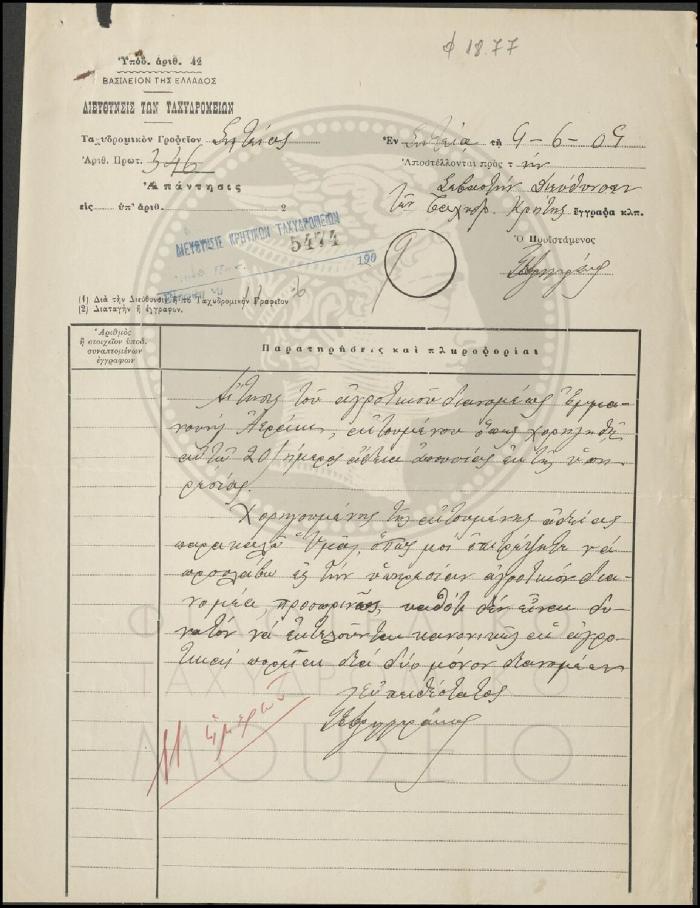 φ 1877
Ὑπόδ. ἀριθ. 42
ΒΑΣΙΛΕΙΟΝ ΤΗΣ ΕΛΛΑΔΟΣ
ΔΙΕΥΘΥΝΣΙΣ ΤΩΝ ΤΑΧΥΔΡΟΜΕΙΩΝ
Ταχυδρομικὸν Γραφεῖον Σητείας
Ἐν Σητείᾳ τῇ 9-6-09
Ἀριθ. Πρωτ. 346
Ἀποστέλλονται πρὸς τὴν
Ἀπάντησις
Σεβαστὴν Διεύθυνσιν
εἰς ὑπ' ἀριθ. 2
τῶν Ταχυδρ. Κρήτης ἔγγραφα κλπ.
ΔΙΕΥΘΥΝΣΙΣ ΚΡΗΤΙΚΩΝ ΤΑΧΥΔΡΟΜΕΙΩΝ
5474
190
9
Ὁ Προϊστάμενος
(1) Διὰ τὴν Διεύθυνσιν ἢ τὸ Ταχυδρομικὸν Γραφεῖον
(2) Διαταγὴν ἢ ἔγγραφον.
Ἀριθμὸς
ἢ στοιχεῖον ὑποδ.
συναπτομένων
ἐγγράφων
Παρατηρήσεις καὶ πληροφορίαι
Αἴτησις τοῦ ἀγροτικοῦ διανομέως Ἐμμα-
νουὴλ, αἰτουμένου ὅπως χορηγηθῇ
αὐτῷ 20 ἡμερος ἄδεια ἀπουσίας ἐκ τῆς ὑπη-
ρεσίας.
Χορηγουμένης τῆς αἰτουμένης ἀδείας
παρακαλῶ Ὑμᾶς, ὅπως μοι ἐπιτρέψητε νὰ
προσλάβω εἰς τὴν ὑπηρεσίαν ἀγροτικὸν δια-
νομέα, προσωρινῶς, καθότι δὲν εἶναι δυ-
νατὸν νὰ ἐκτελοῦνται κανονικῶς αἱ ἀγρο-
τικαὶ πορεῖαι διὰ δύο μόνον διανομέων
Εὐπειθέστατος
11 ἡμερῶν
ΦΙΛΟΤΕΛΙΚΟ
ΤΑΧΥΔΡΟΜΙΚΟ
ΜΟΥΣΕΙΟ